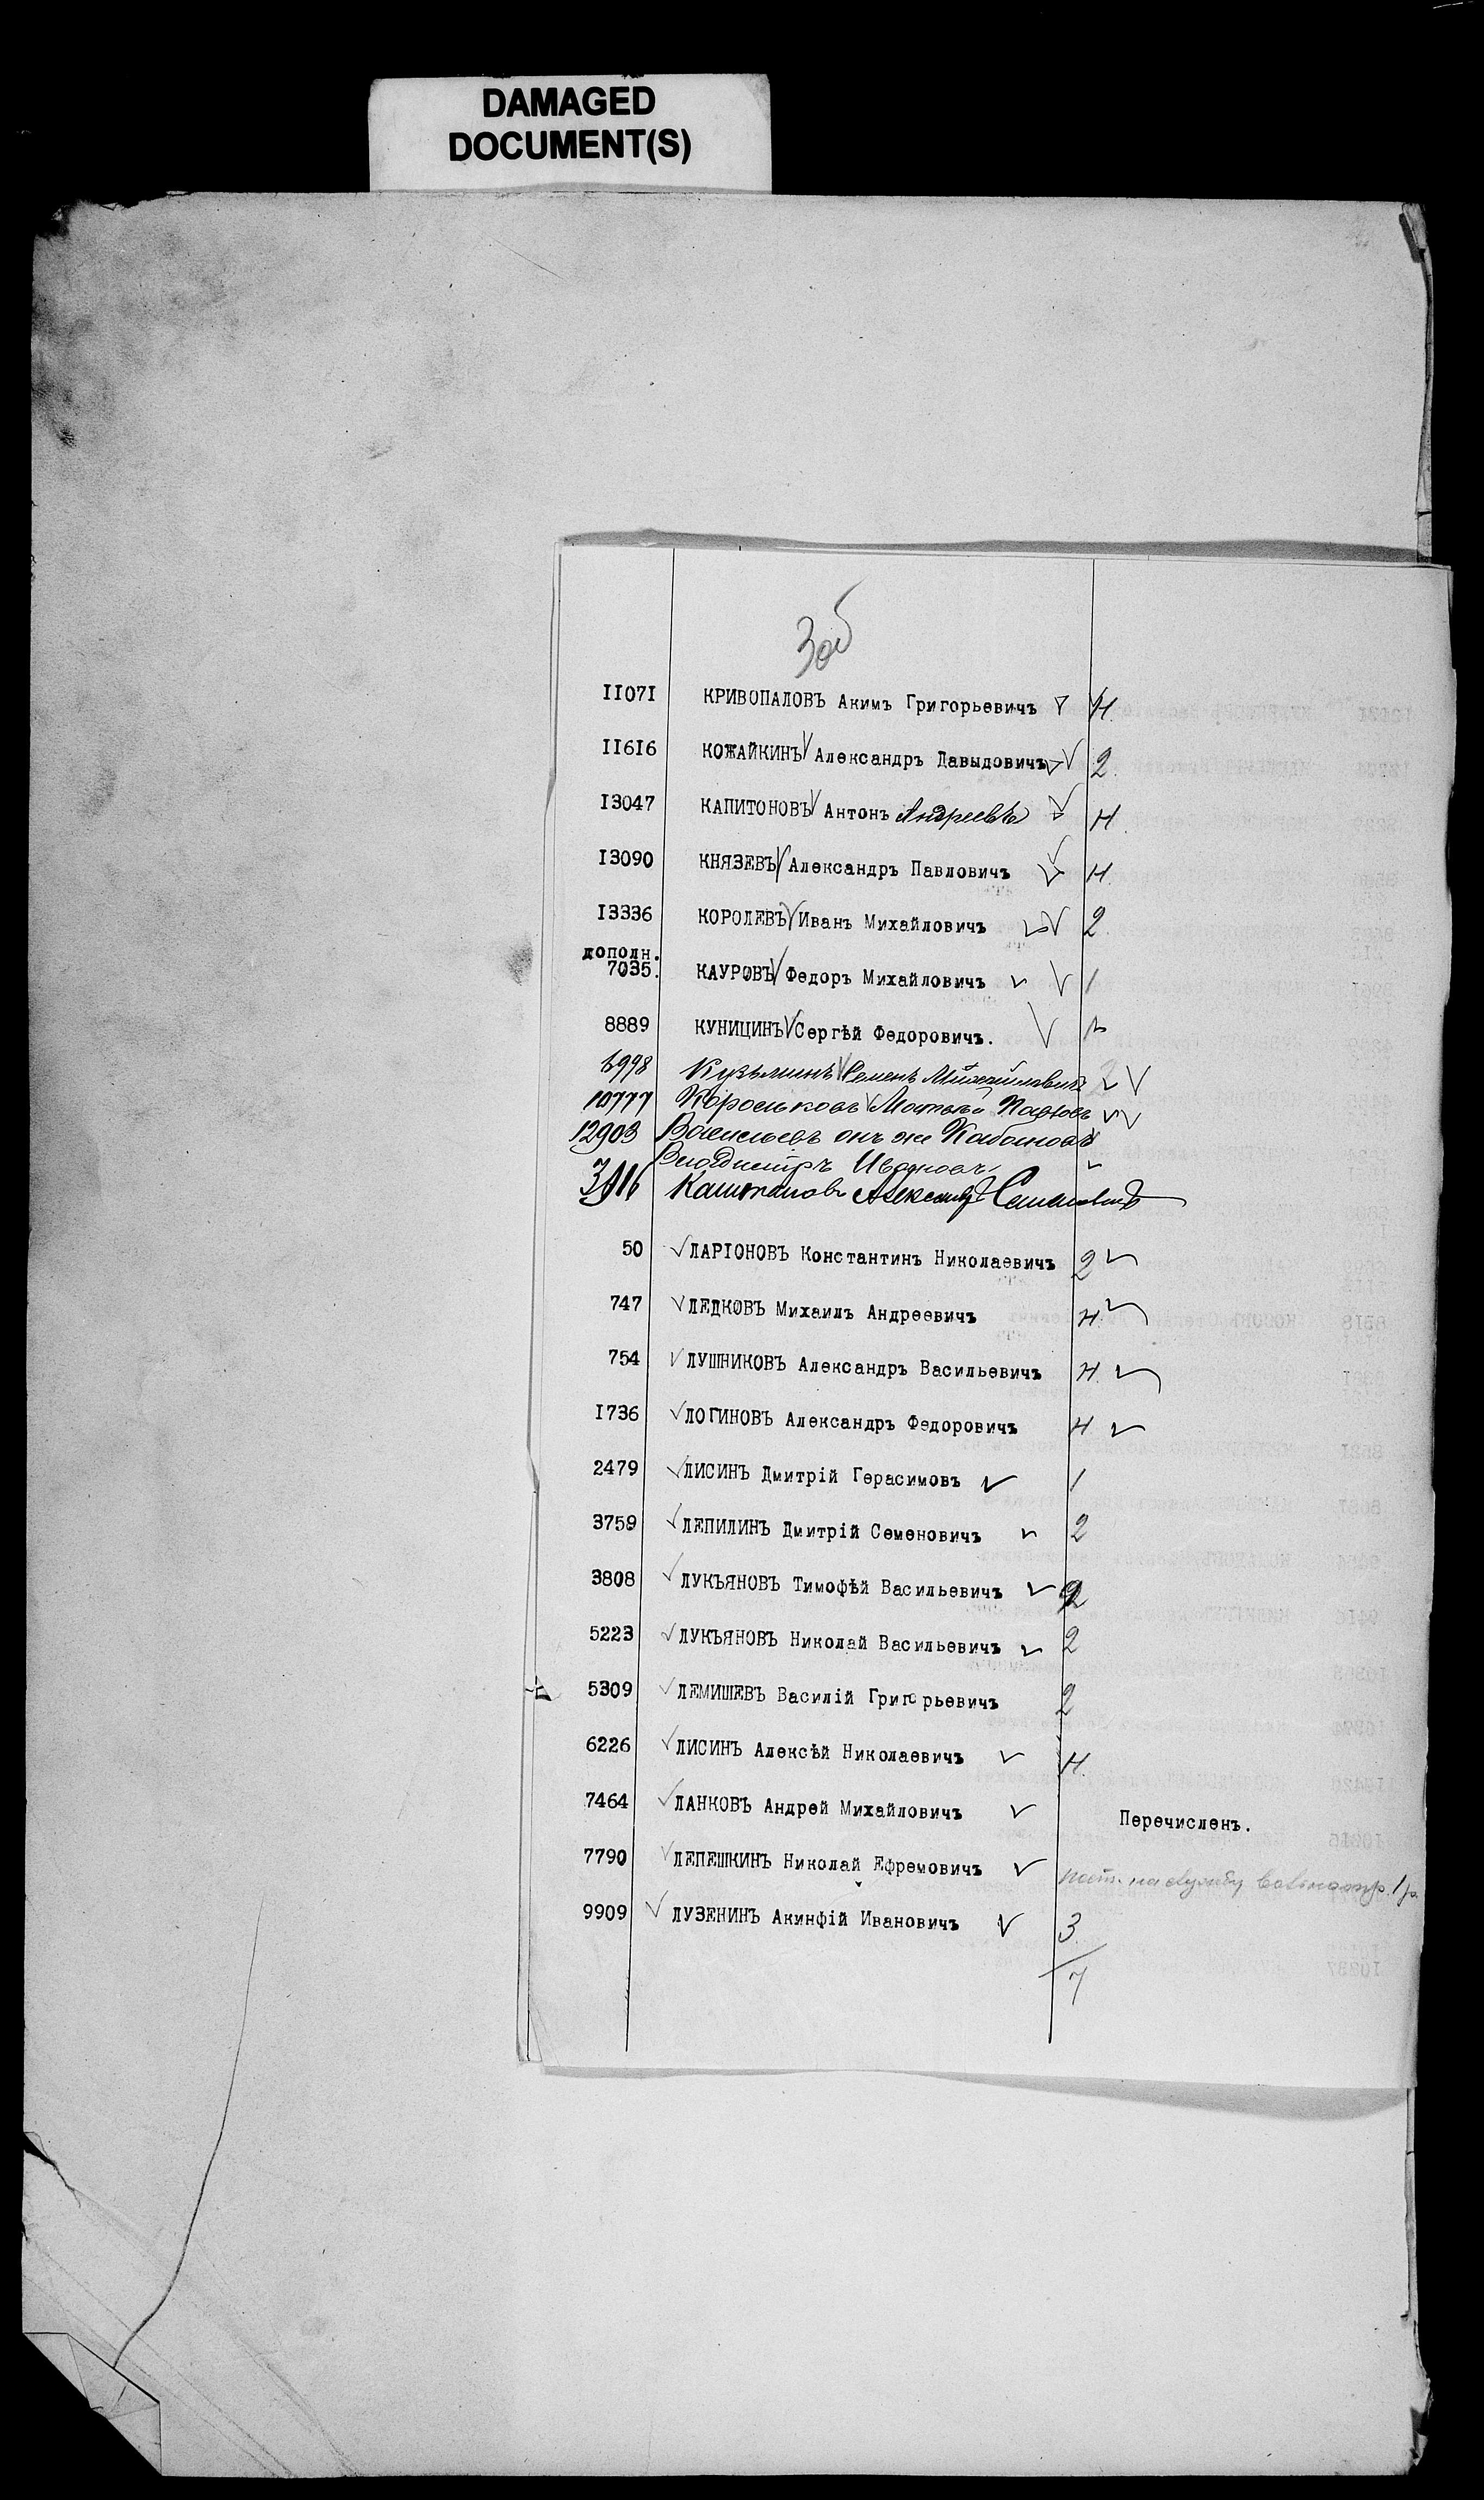 DAMAGED
DOCUMENT(S)
3об
11071 КРИВОПАЛОВЪ Акимъ Григорьевичъ Н.
11616 КОЖАЙКИНЪ Александръ Давыдовичъ 2.
13047 КАПИТОНОВЪ Антонъ Андреевъ Н.
13090 КНЯЗЕВЪ Александръ Павловичъ Н.
13336 КОРОЛЕВЪ Иванъ Михайловичъ 2.
дополн.
7035. КАУРОВЪ Федоръ Михайловичъ 1
8889 КУНИЦИНЪ Сергѣй Федоровичъ.
6998 Кузьминъ Семенъ Михайловичъ 2
10777 Корольковъ Матвѣй
12903 Васильевъ онъ же Кабановъ
Владимиръ Ивановъ
3916 Каштановъ Александръ Семеновичъ
50 ЛАРІОНОВЪ Константинъ Николаевичъ 2
747 ЛЕДКОВЪ Михаилъ Андреевичъ Н
754 ЛУШНИКОВЪ Александръ Васильевичъ Н.
1736 ЛОГИНОВЪ Александръ Федоровичъ Н
2479 ЛИСИНЪ Дмитрій Герасимовъ 1
3759 ЛЕПИЛИНЪ Дмитрій Семеновичъ 2
3808 ЛУКЪЯНОВЪ Тимофѣй Васильевичъ 2
5223 ЛУКЪЯНОВЪ Николай Васильевичъ 2
5309 ЛЕМИШЕВЪ Василій Григорьевичъ 2
6226 ЛИСИНЪ Алексѣй Николаевичъ Н.
7464 ЛАНКОВЪ Андрей Михайловичъ Перечисленъ.
7790 ЛЕПЕШКИНЪ Николай Ефремовичъ на службу
9909 ЛУЗЕНИНЪ Акинфій Ивановичъ 3.
7